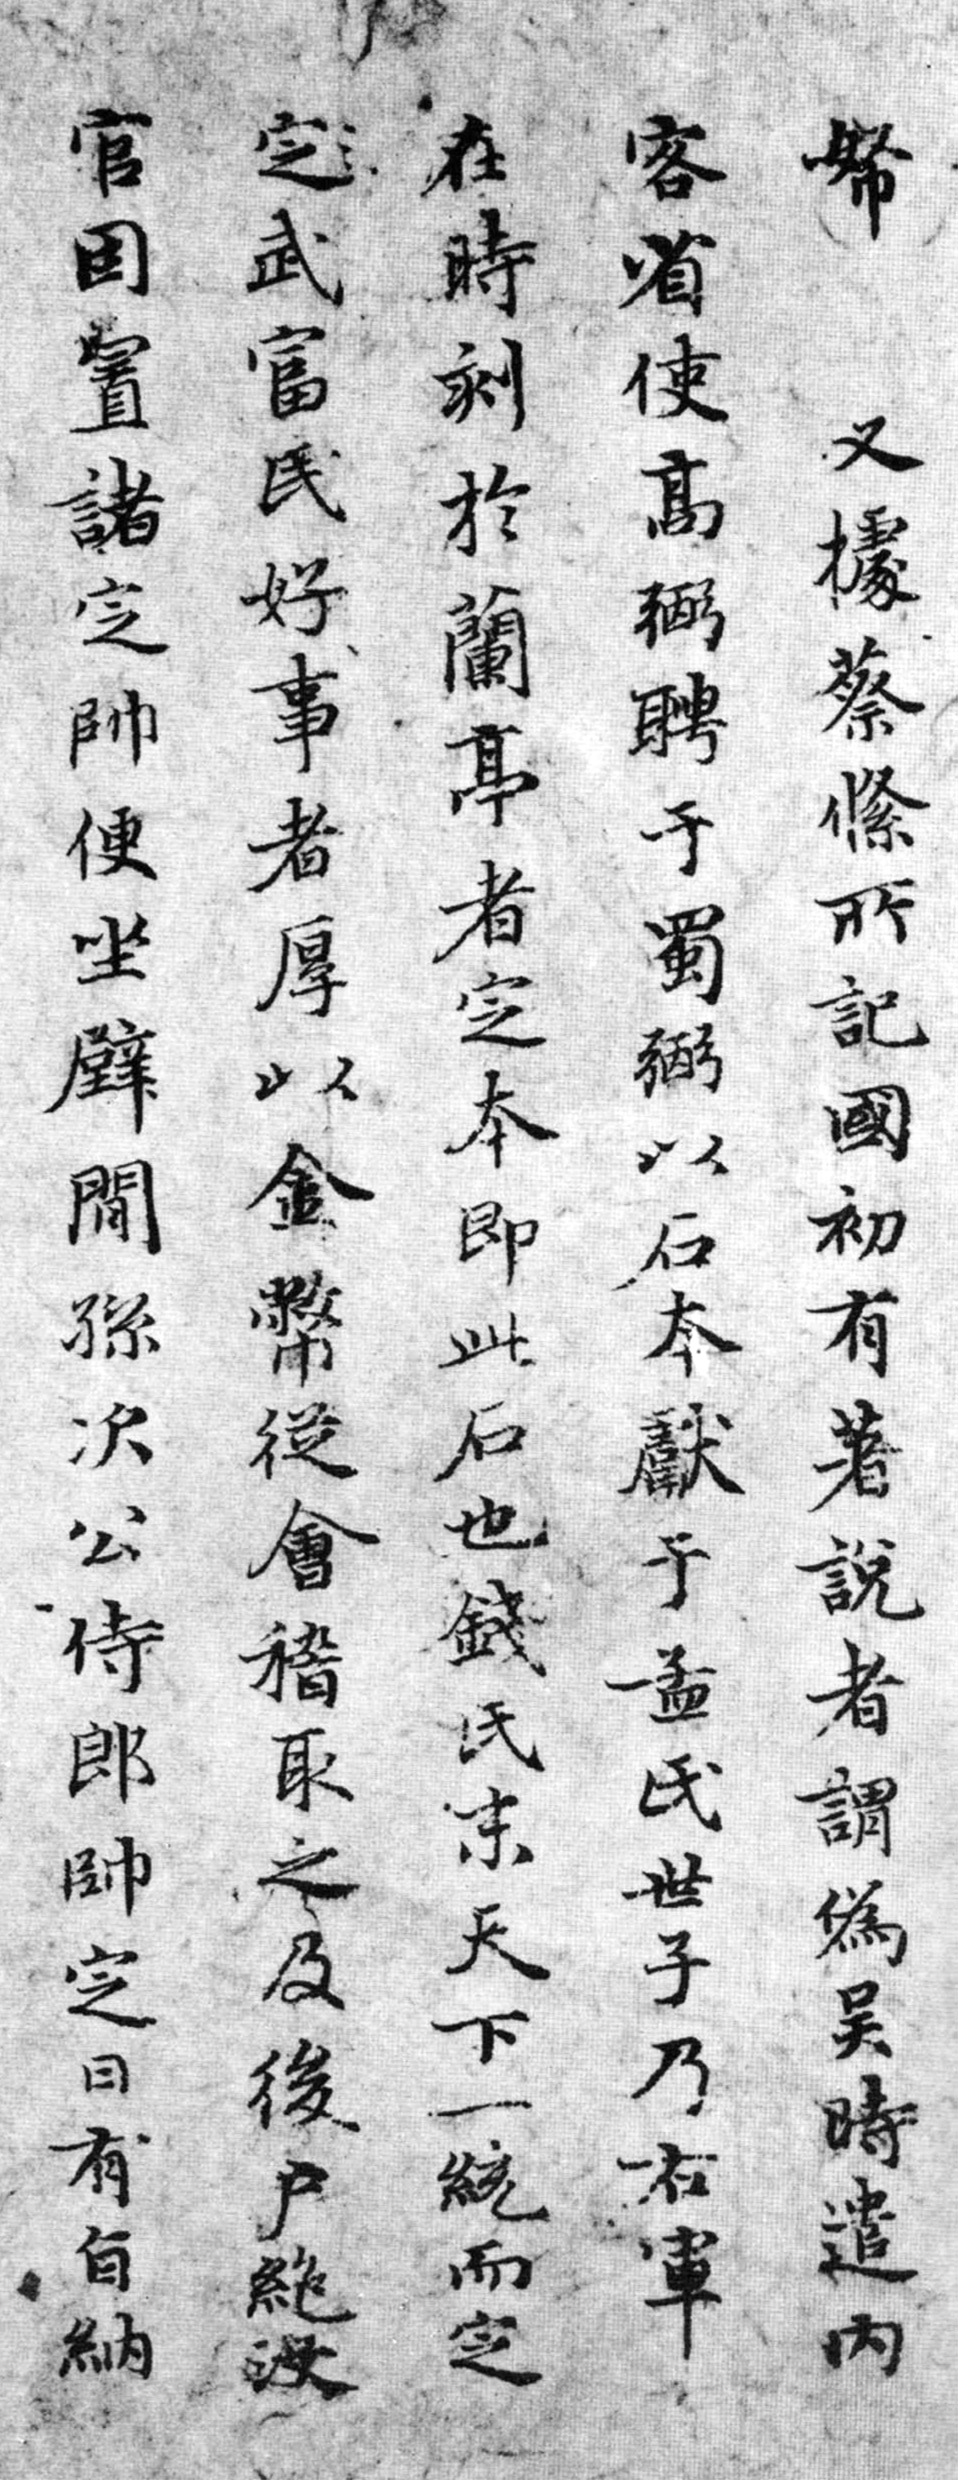 帑　又據蔡絛所記國初有著說者謂偽吳時遣內
客省使高弼聘于蜀弼以石本獻于孟氏世子乃右軍
在時刻於蘭亭者定本即此石也錢氏末天下一統而定
定武富民好事者厚以金幣從會稽取之及後戶絕沒
官因置諸定帥便坐壁間孫次公侍郎帥定日有旨納